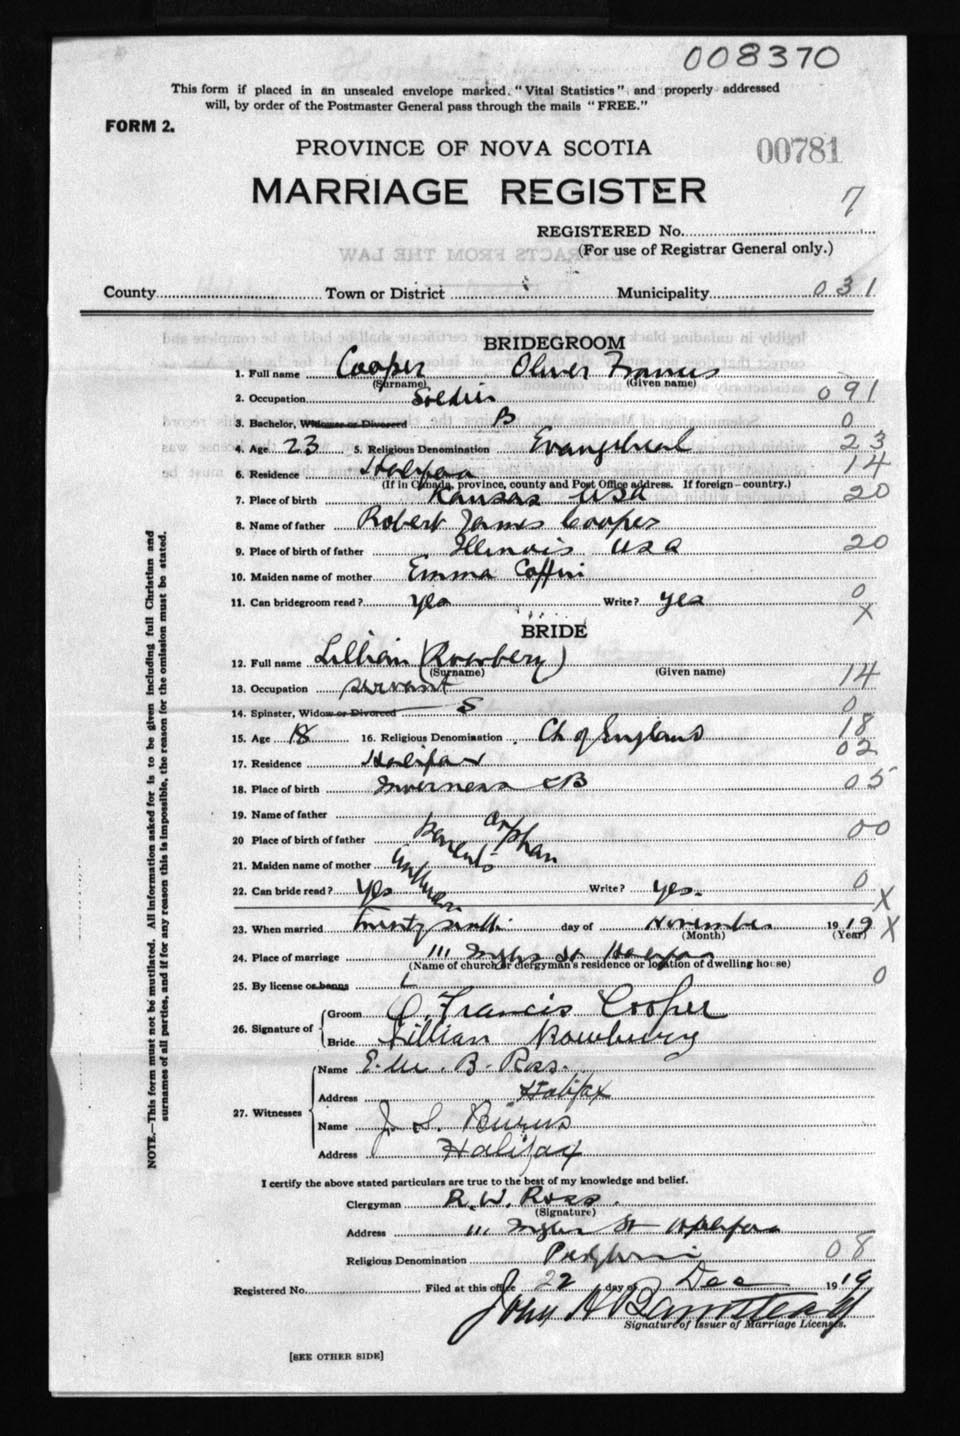 008370
This form if placed in an unsealed envelope marked "Vital Statistics" and properly addressed
will, by order of the Postmaster General pass through the mails "FREE."
FORM 2.
PROVINCE OF NOVA SCOTIA
00781
MARRIAGE REGISTER
7
REGISTERED No.
(For use of Registrar General only.)
County Town or District Municipality 031
BRIDEGROOM
1. Full name Cooper Oliver Francis
(Surname) (Given name)
2. Occupation Soldier 091
3. Bachelor, Widower or Divorced B 0
4. Age 23 5. Religious Denomination Evangelical 23
6. Residence Halifax 14
(If in Canada, province, county and Post Office address. If foreign—country.)
7. Place of birth Kansas USA 20
8. Name of father Robert James Cooper
9. Place of birth of father Illinois USA 20
10. Maiden name of mother Emma Coffin
11. Can bridegroom read? yes Write? yes 0
X
BRIDE
12. Full name Lillian (Rowbery)
(Surname) (Given name)
13. Occupation servant 14
14. Spinster, Widow or Divorced S 0
15. Age 18 16. Religious Denomination Ch of England 18
17. Residence Halifax 02
18. Place of birth Inverness CB 05
19. Name of father orphan
20 Place of birth of father Parents 00
21. Maiden name of mother unknown
22. Can bride read? yes Write? yes. 0
X
23. When married twenty sixth day of November 1919 X
(Month) (Year)
24. Place of marriage 111 Inglis St Halifax
(Name of church or clergyman's residence or location of dwelling house)
25. By license or banns L 0
26. Signature of Groom O. Francis Cooper
Bride Lillian Rowbury
27. Witnesses Name E. M. B. Ross.
Address Halifax
Name J. S. Burns
Address Halifax
I certify the above stated particulars are true to the best of my knowledge and belief.
Clergyman R. W. Ross.
(Signature)
Address 111 Inglis St Halifax
Religious Denomination 08
Registered No. Filed at this office 22 day of Dec 1919
John H Barnstead
Signature of Issuer of Marriage Licenses.
[SEE OTHER SIDE]
NOTE.—This form must not be mutilated. All information asked for is to be given including full Christian and
surnames of all parties, and if for any reason this is impossible, the reason for the omission must be stated.